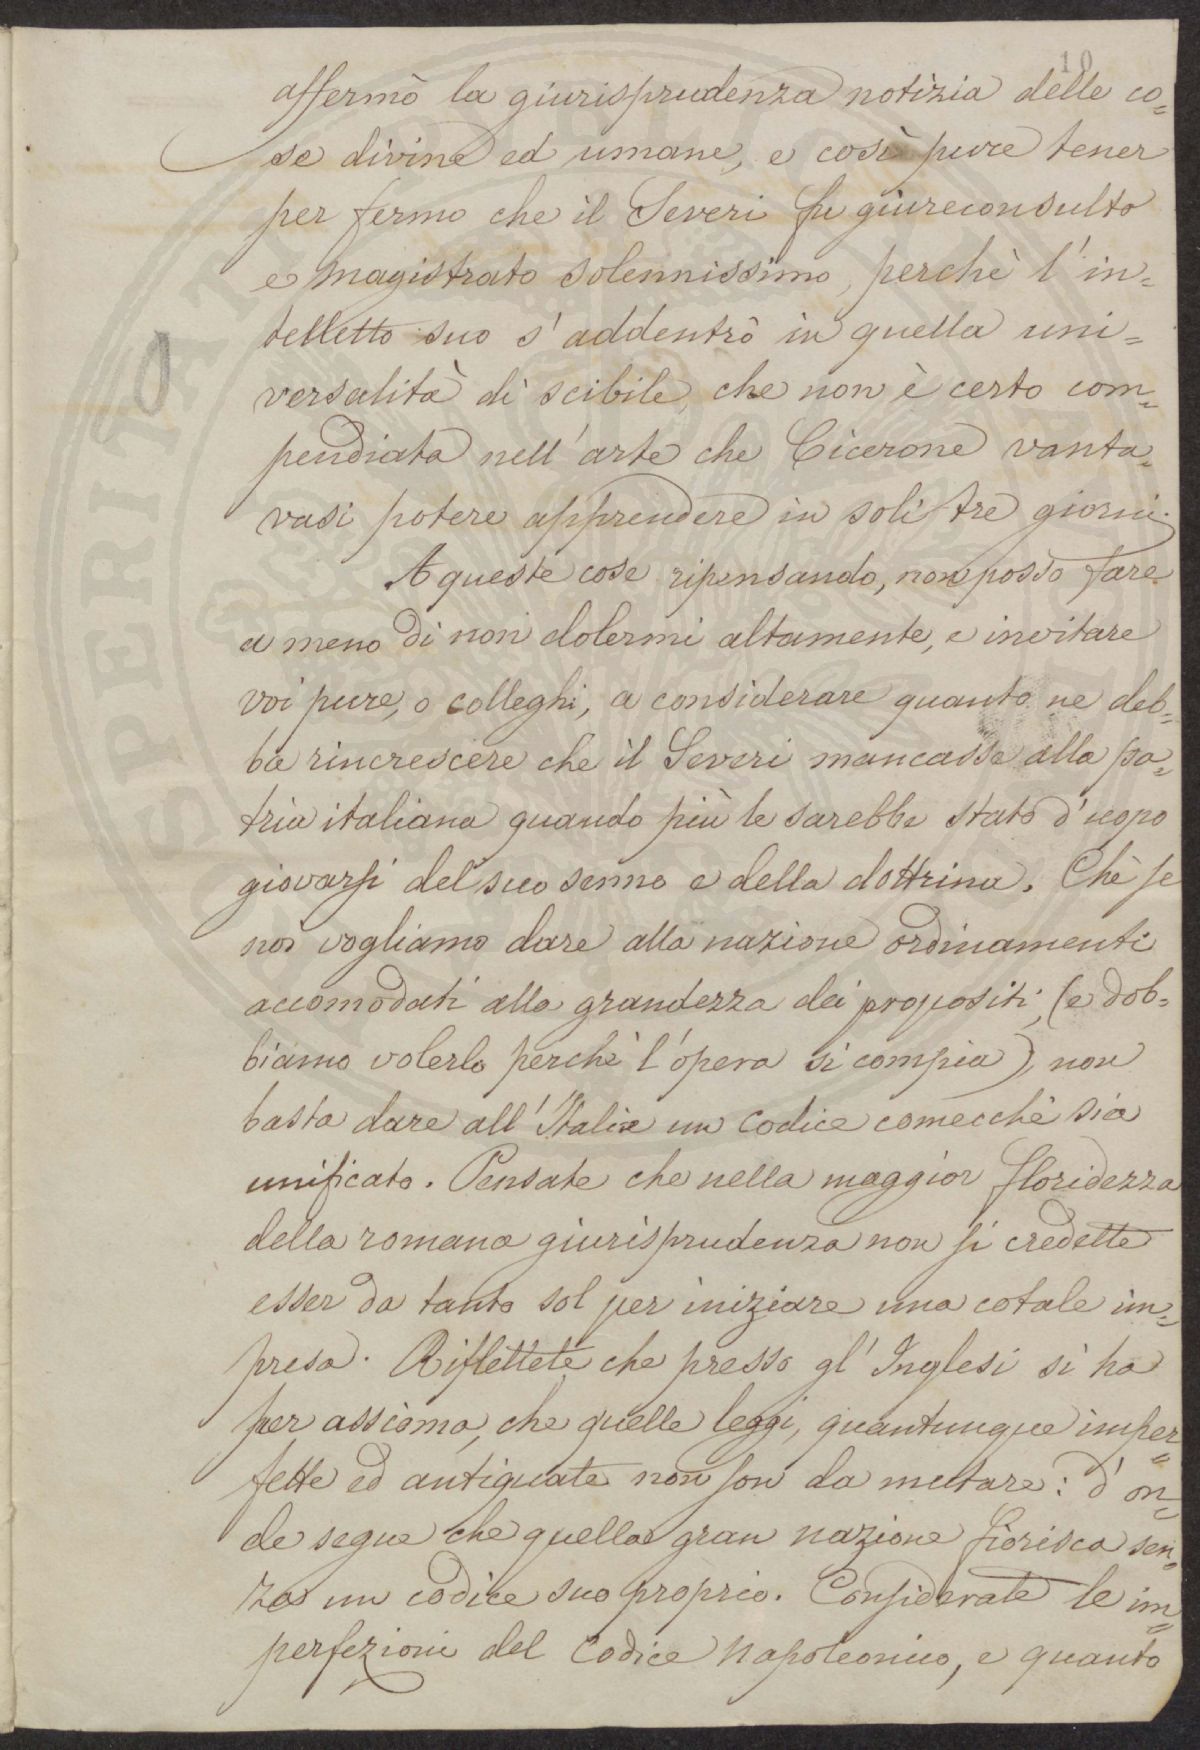 10
affermò la giurisprudenza notizia delle co=
se divine ed umane, e così pure tener
per fermo che il Severi fu giureconsulto
e magistrato solennissimo, perchè l'in=
telletto suo s'addentrò in quella uni=
versalità di scibile, che non è certo com=
pendiata nell'arte che Cicerone vanta=
vasi potere apprendere in soli tre giorni.
A queste cose ripensando, non posso fare
a meno di non dolermi altamente, e invitare
voi pure, o colleghi, a considerare quanto ne deb=
ba rincrescere che il Severi mancasse alla pa=
tria italiana quando più le sarebbe stato d'uopo
giovarsi del suo senno e della dottrina. Chè se
noi vogliamo dare alla nazione ordinamenti
accomodati alla grandezza dei propositi, (e dob=
biamo volerlo perchè l'opera si compia), non
basta dare all'Italia un codice comecchè sia
unificato. Pensate che nella maggior floridezza
della romana giurisprudenza non si credette
esser da tanto sol per iniziare una cotale im=
presa. Riflettete che presso gl'Inglesi si ha
per assioma, che quelle leggi, quantunque imper=
fette ed antiquate non son da mutare: d'on=
de segue che quella gran nazione fiorisca sen=
za un codice suo proprio. Considerate le im=
perfezioni del Codice Napoleonico, e quanto
PROSPERITATI PUBLICAE